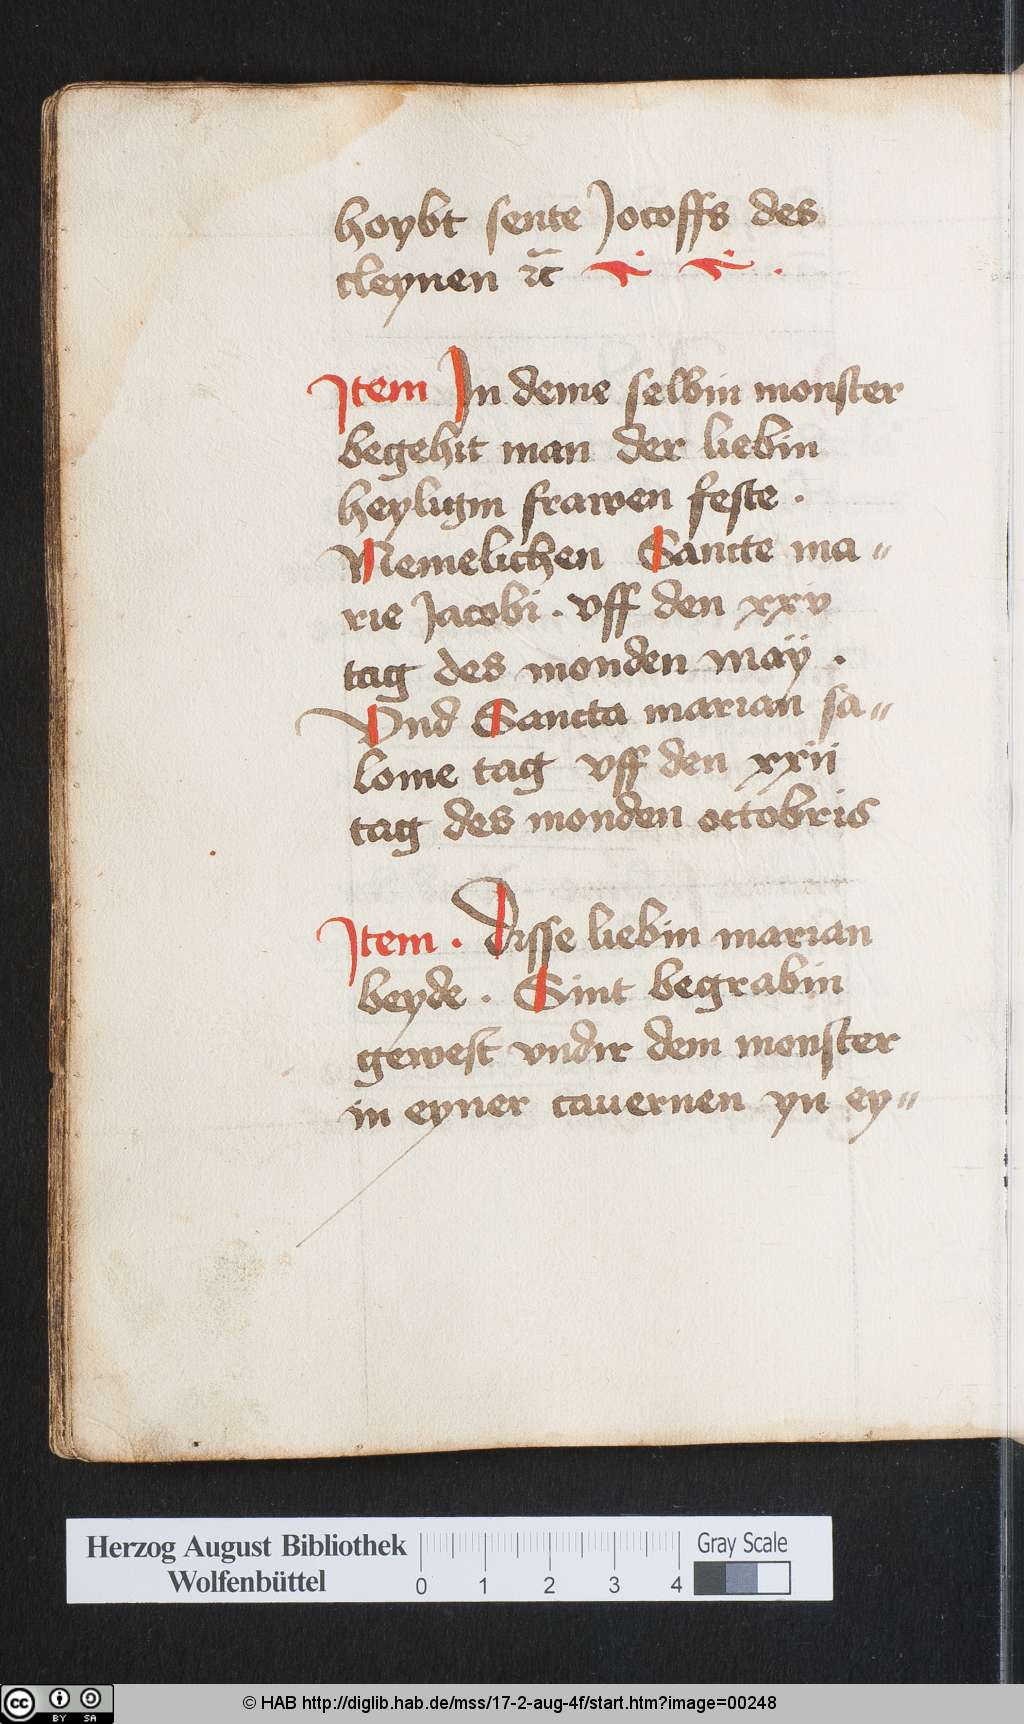 hoybt sente Jocoffs des
cleynen ⁊c̄
Item In deme selbin monster
begehit man der liebin
heyligin frawen feste .
Nemelichen Sancte ma =
rie Jacobi . vff den xxv
tag des monden maÿ .
Vnd Sancta marian sa =
lome tag vff den xxii
tag des monden octobris
Item . Disse liebin marian
beyde . Sint begrabin
gewest vndir dem monster
in eyner cauernen yn ey =
Herzog August Bibliothek
Wolfenbüttel
0 1 2 3 4
Gray Scale
cc BY SA
© HAB http://diglib.hab.de/mss/17-2-aug-4f/start.htm?image=00248